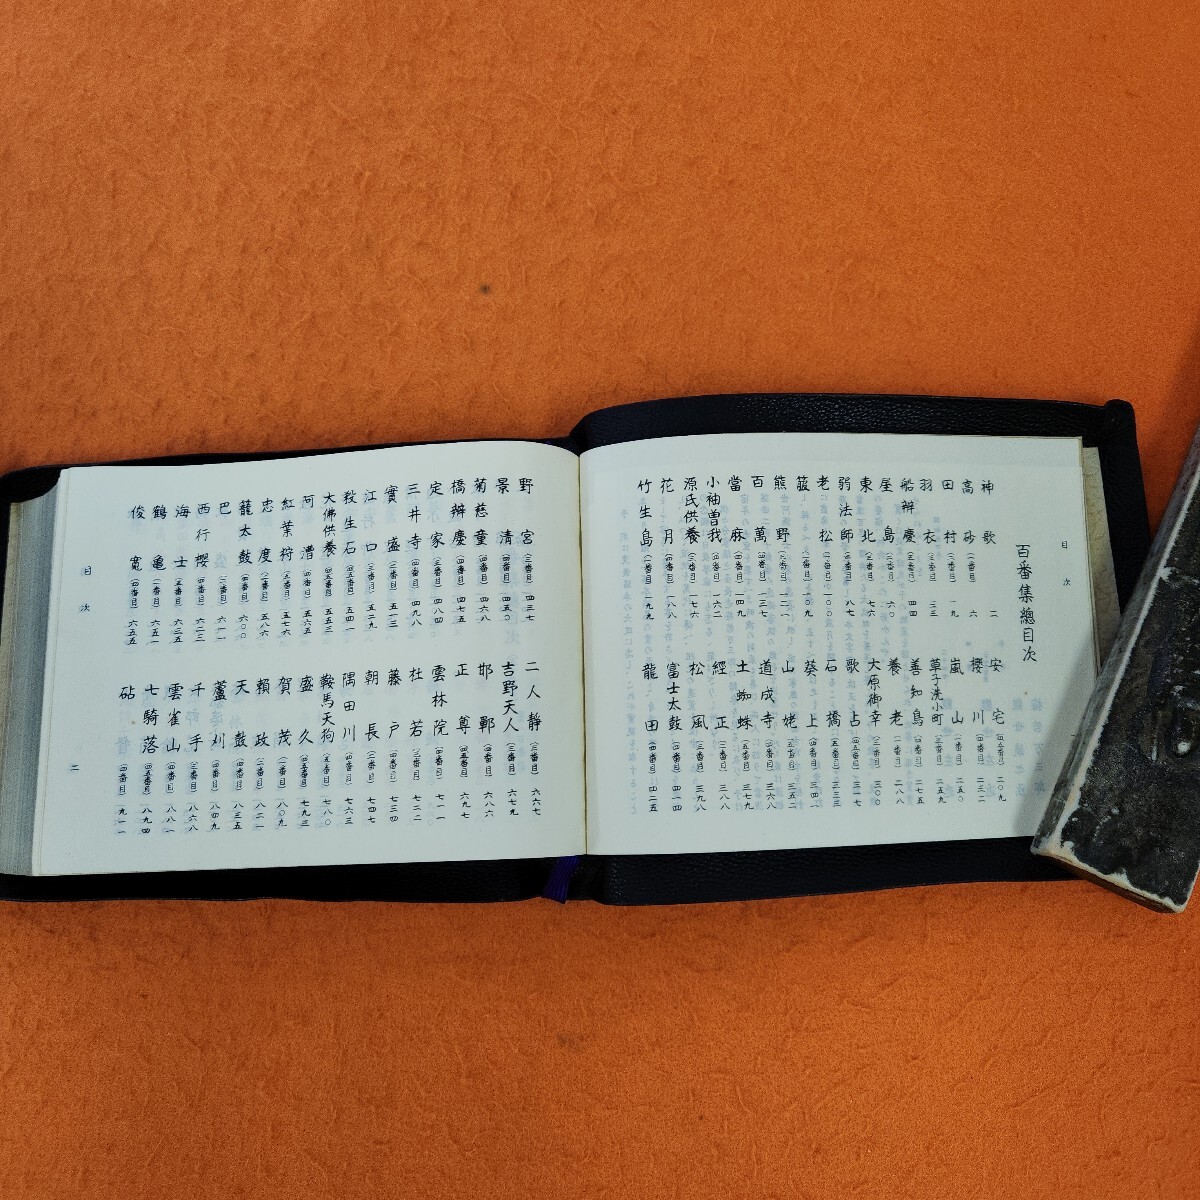 目次
百番集總目次
神歌 二
高砂(一番目) 六
田村(二番目) 一九
羽衣(三番目) 三三
船辨慶(五番目) 四四
屋島(二番目) 六〇
東北(三番目) 七六
弱法師(四番目) 八七
老松(一番目) 一〇〇
箙(二番目)
熊野(三番目) 一二一
百萬(四番目) 一三七
當麻(五番目) 一四九
小袖曽我(四番目) 一六二
源氏供養(三番目) 一七六
花月(四番目) 一八八
竹生島(一番目) 一九九
安宅(四五番目) 二〇九
櫻川(四番目) 二三二
嵐山(一番目) 二五〇
草子洗小町(三番目) 二五九
善知鳥(四番目) 二七五
養老(一番目) 二八八
大原御幸(三番目) 三〇〇
歌占(四番目) 三一七
石橋(五番目) 三三三
葵上(四番目) 三四一
山姥(五番目) 三五二
道成寺(四番目) 三六八
土蜘蛛(五番目) 三七九
經正(二番目) 三八八
松風(三番目) 三九八
富士太鼓(四番目) 四一四
龍田(四番目) 四二五
野宮(三番目) 四三七
景清(四番目) 四五〇
菊慈童(四番目) 四六八
橋辨慶(四番目) 四七五
定家(三番目) 四八四
三井寺(四番目) 四九八
實盛(二番目) 五一三
江口(三番目) 五二九
殺生石(四五番目) 五四一
大佛供養(四番目) 五五三
阿漕(四番目) 五六五
紅葉狩(五番目) 五七六
忠度(二番目) 五八六
籠太鼓(四番目) 六〇〇
巴(二番目) 六一一
西行櫻(四番目) 六二二
海士(五番目) 六三五
鶴亀(一番目) 六五一
俊寛(四番目) 六五五
二人静(三番目) 六六七
吉野天人(三番目) 六七九
邯鄲(四番目) 六八六
正尊(四番目) 六九七
雲林院(四番目) 七一一
杜若(三番目) 七二二
藤戸(四番目) 七三四
朝長(二番目) 七四七
隅田川(四番目) 七六三
鞍馬天狗(五番目) 七八〇
盛久(四番目) 七九三
賀茂(一番目) 八〇九
頼政(二番目) 八二一
天鼓(四番目) 八三五
蘆刈(四番目) 八四九
千手(三番目) 八六八
雲雀山(四番目) 八八一
七騎落(四番目) 八九四
砧(四番目) 九一一
目次
二